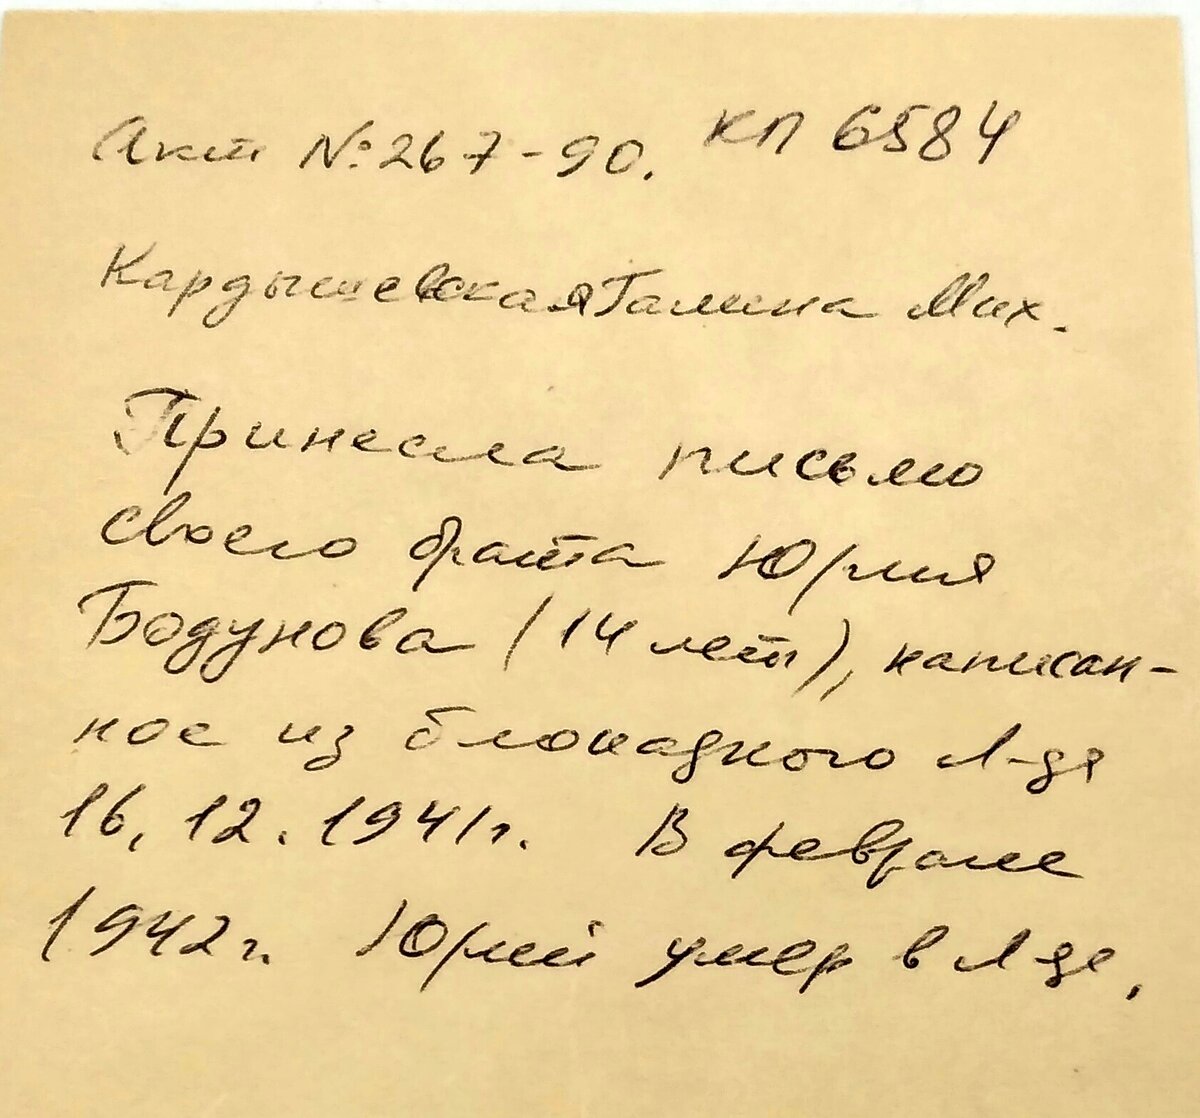 Акт №267-90. КП 6584
Кардышевская Галина Мих.
Принесла письмо
своего брата Юрия
Бодунова (14 лет), написан-
ное из блокадного Л-да
16.12.1941г. В феврале
1942г. Юрий умер в Л-де.